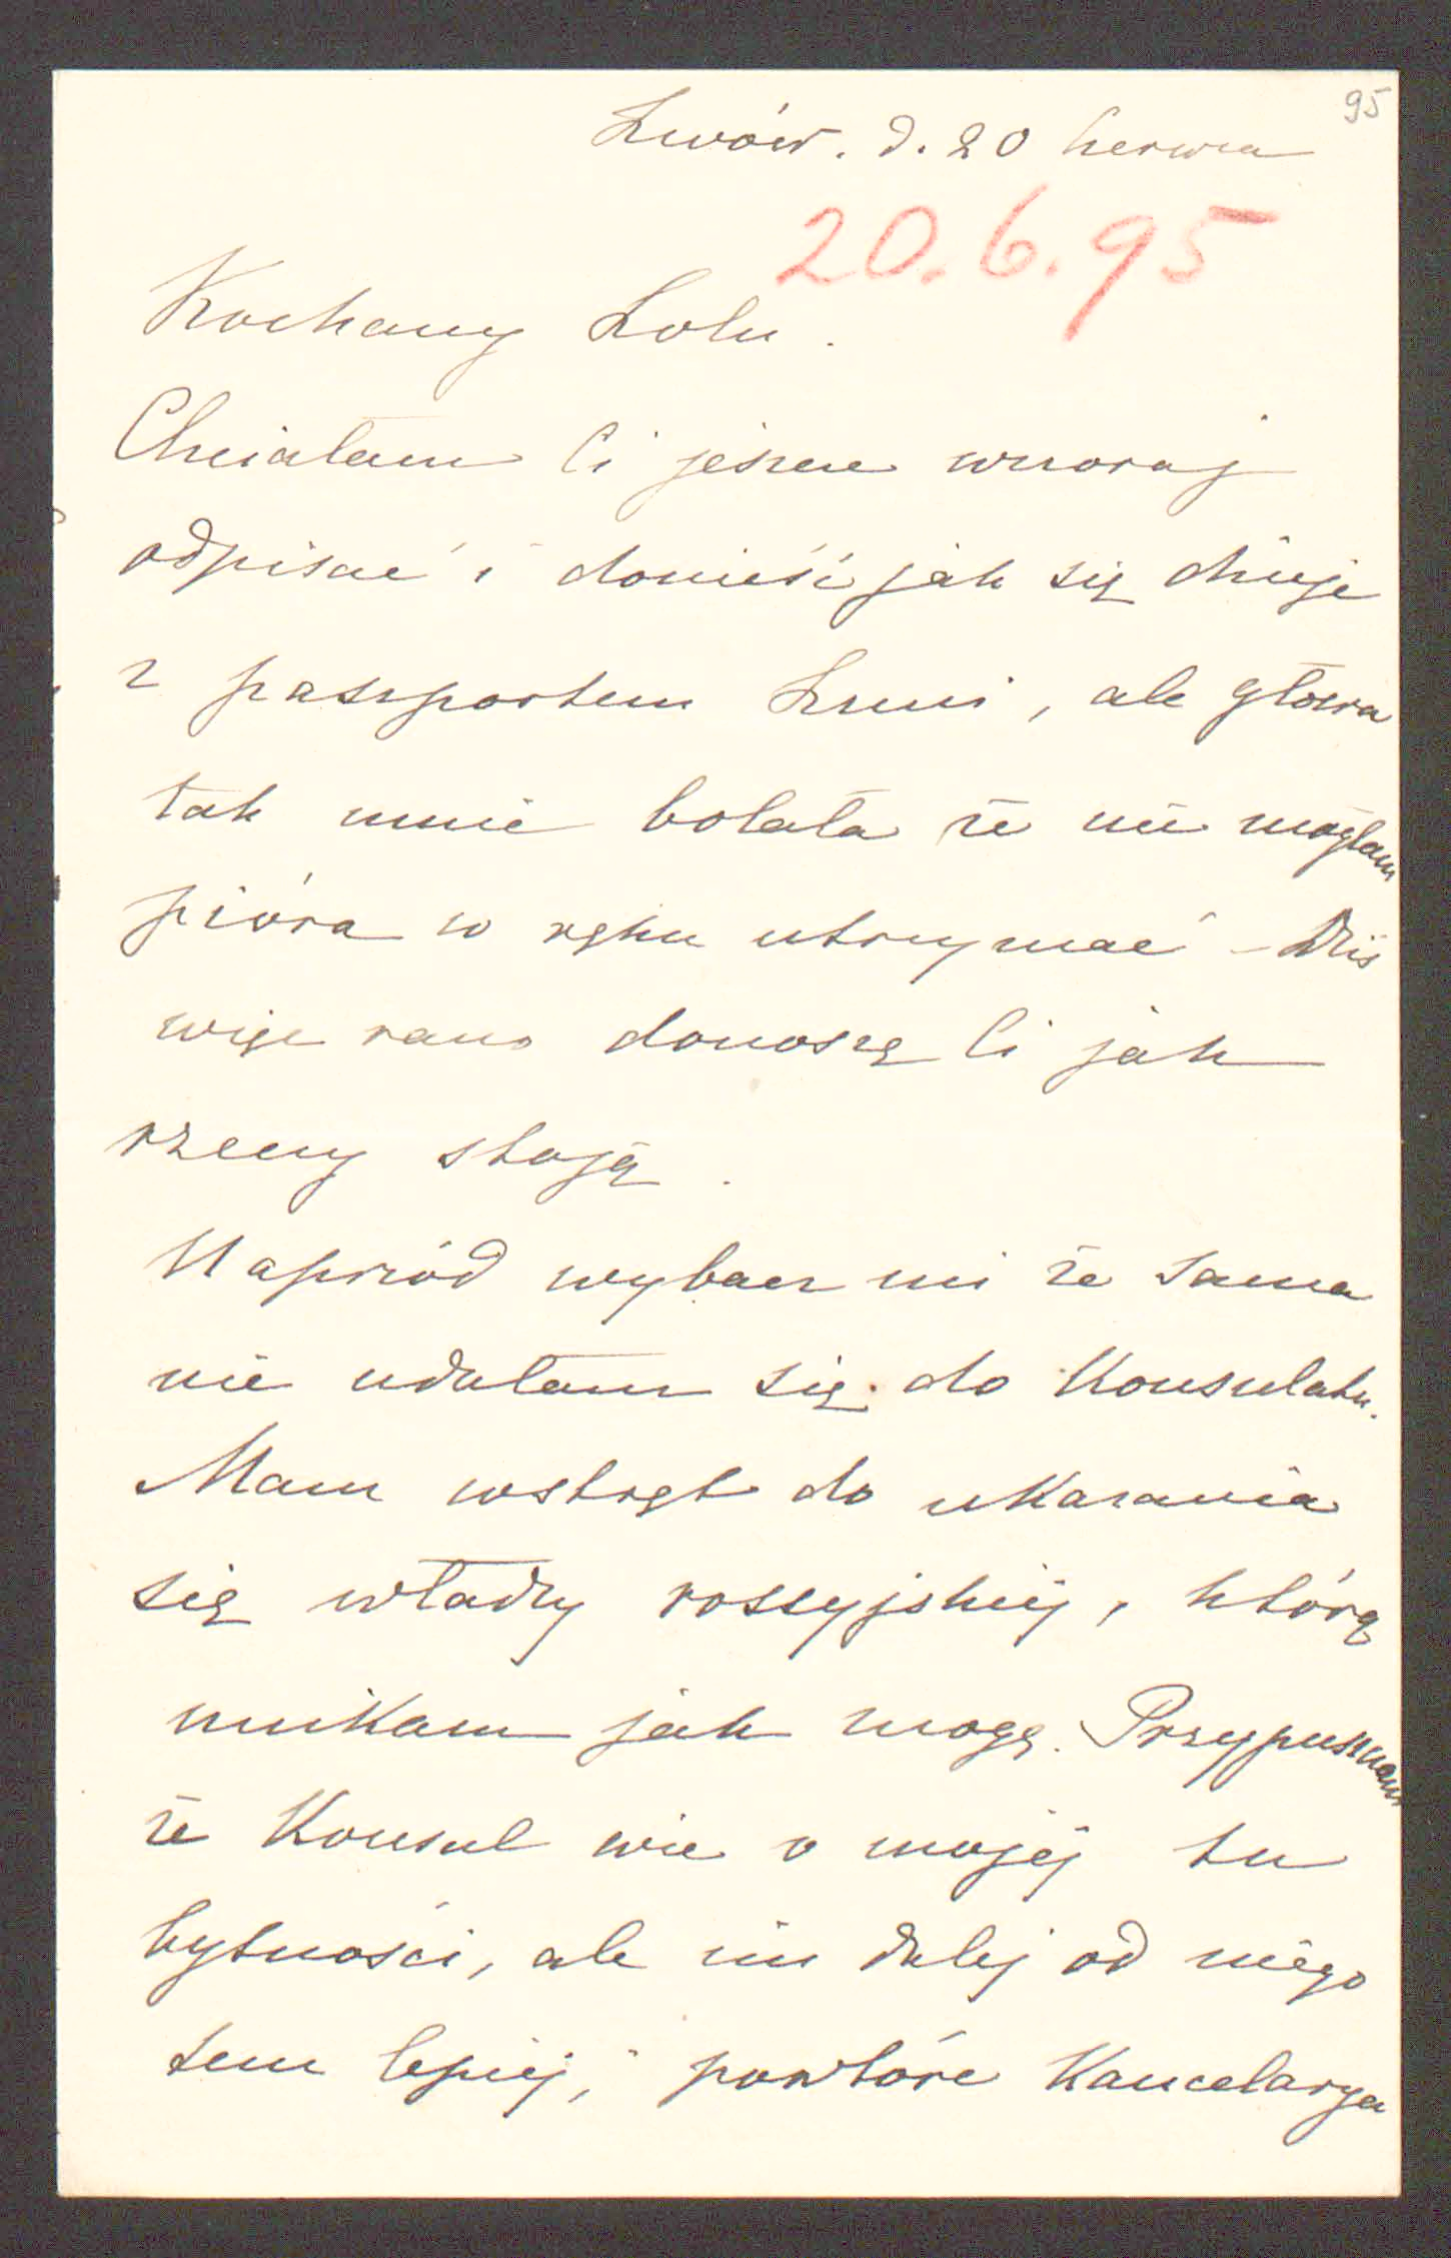 95
Lwów. d. 20 Czerwca
20.6.95
Kochany Lolu.
Chciałam Ci jeszcze wczoraj
odpisać i donieść jak się dzieje
z paszportem, ale głowa
tak mnie bolała że nie mogłam
pióra w ręku utrzymać – Dziś
więc rano donoszę Ci jak
rzeczy stoją.
Naprzód wybacz mi że sama
nie udałam się do Konsulatu.
Mam wstręt do ukazania
się władzy rossyjskiej, którą
unikam jak mogę. Przypuszczam
że Konsul wie o mojej tu
bytności, ale im dalej od niego
tem lepiej, powtóre Kancelarya